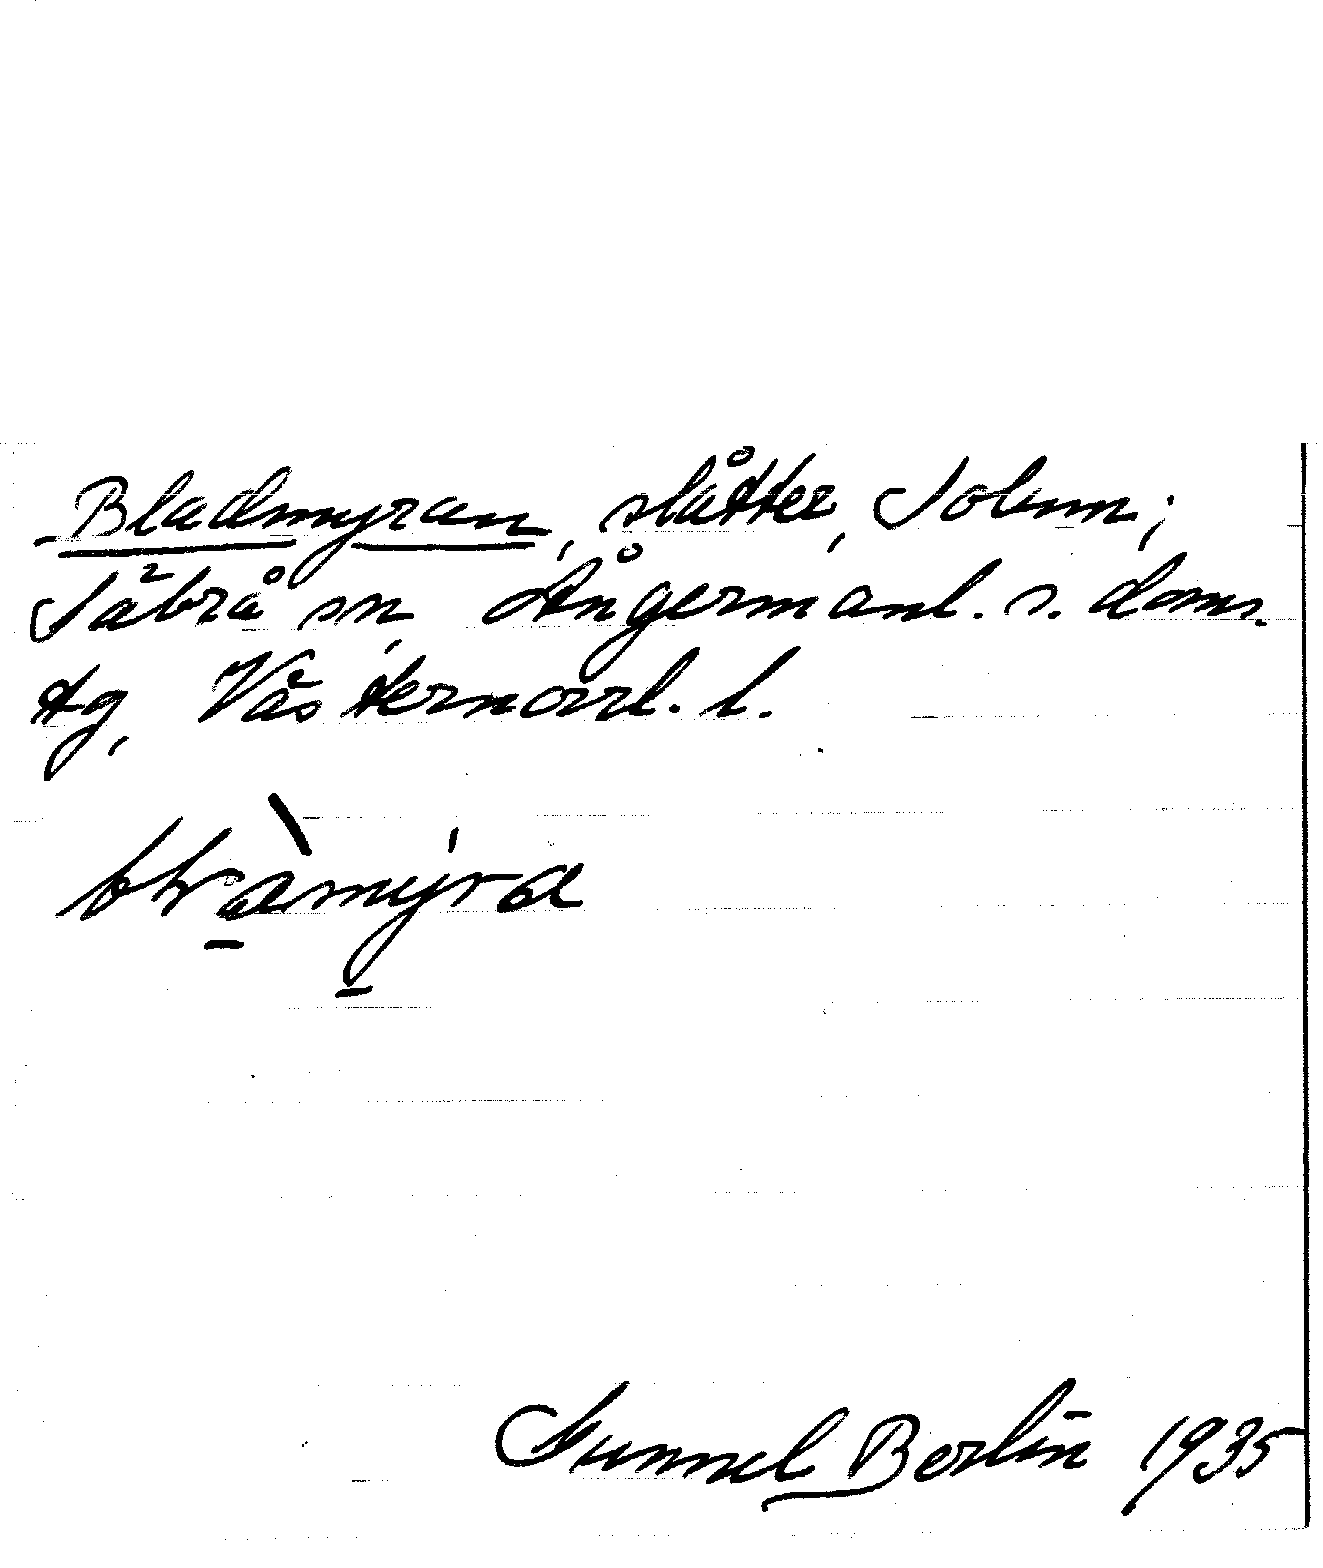 Bladmyran, slåtter, Solum;
Säbrå sn, Ångermanl. s. doms.
tg, Västernorrl. l.
Gunnel Berlin 1935